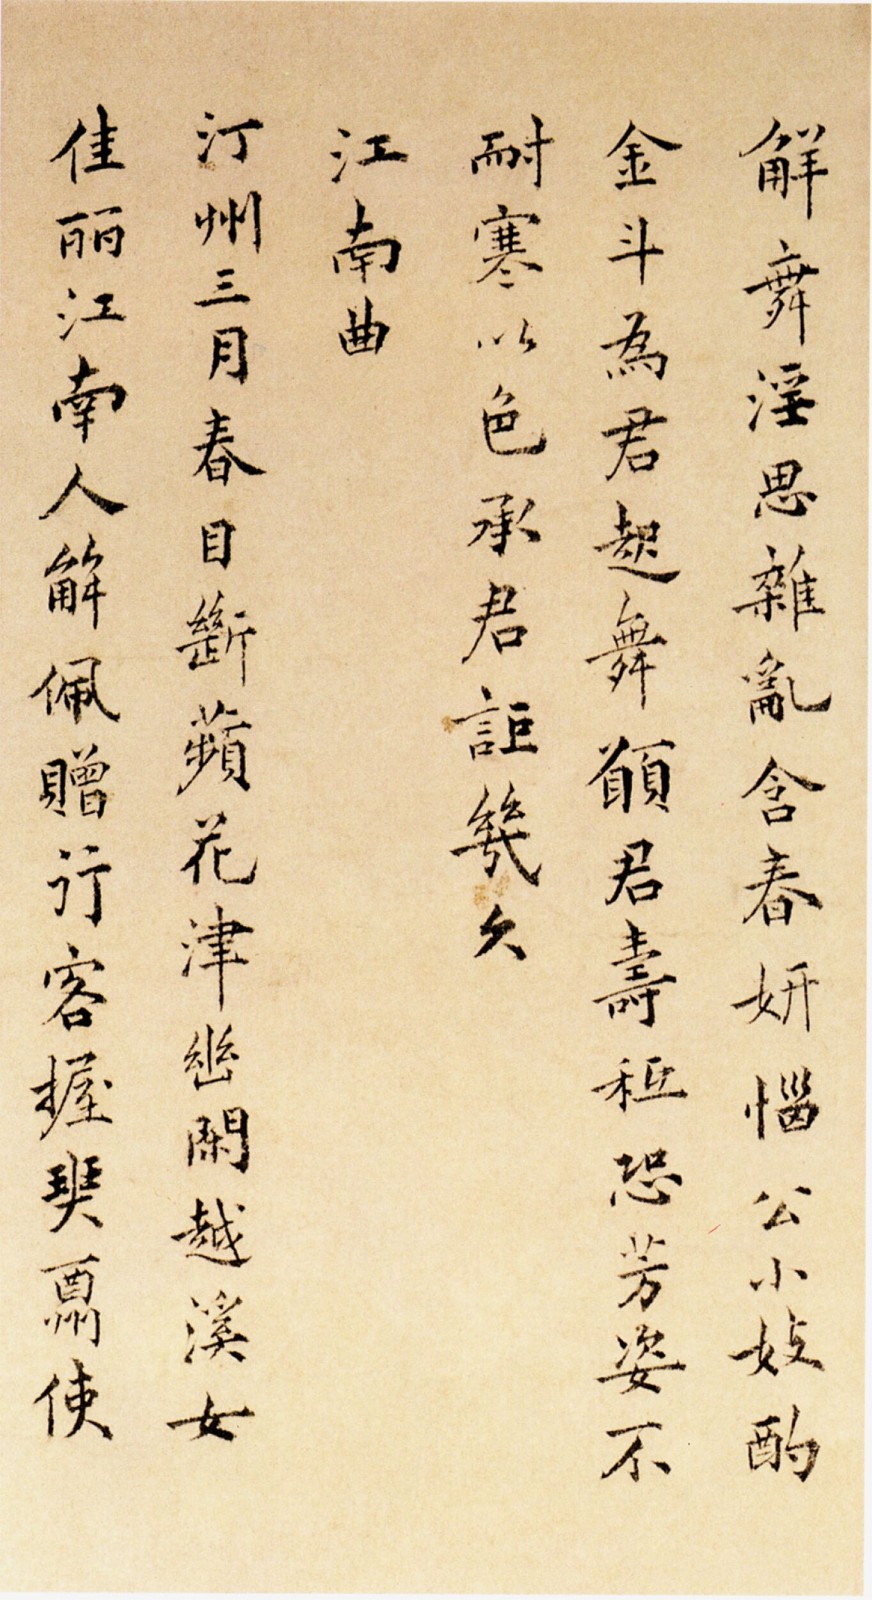 解舞淫思雜亂含春妍惱公小妓酌
金斗為君起舞願君壽秪恐芳姿不
耐寒以色承君詎幾久
江南曲
汀州三月春目斷蘋花津幽閑越溪女
佳丽江南人解佩贈行客握
使